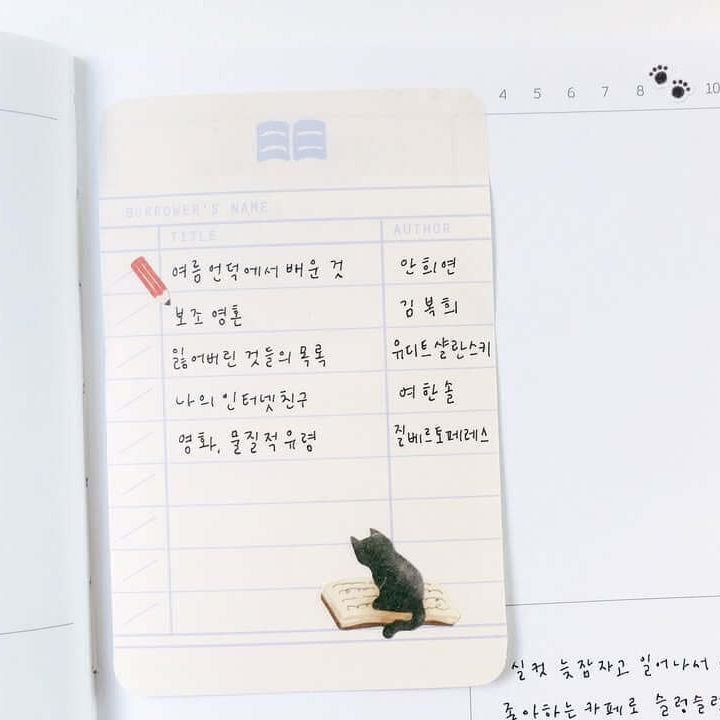 4 5 6 7 8 10
BORROWER'S NAME
TITLE AUTHOR
여름 언덕에서 배운 것 안희연
보조 영혼 김복희
잃어버린 것들의 목록 유디트 샬란스키
나의 인터넷 친구 여한솔
영화, 물질적 유령 질베르토 페레스
실컷 늦잠 자고 일어나서
좋아하는 카페로 슬렁슬렁